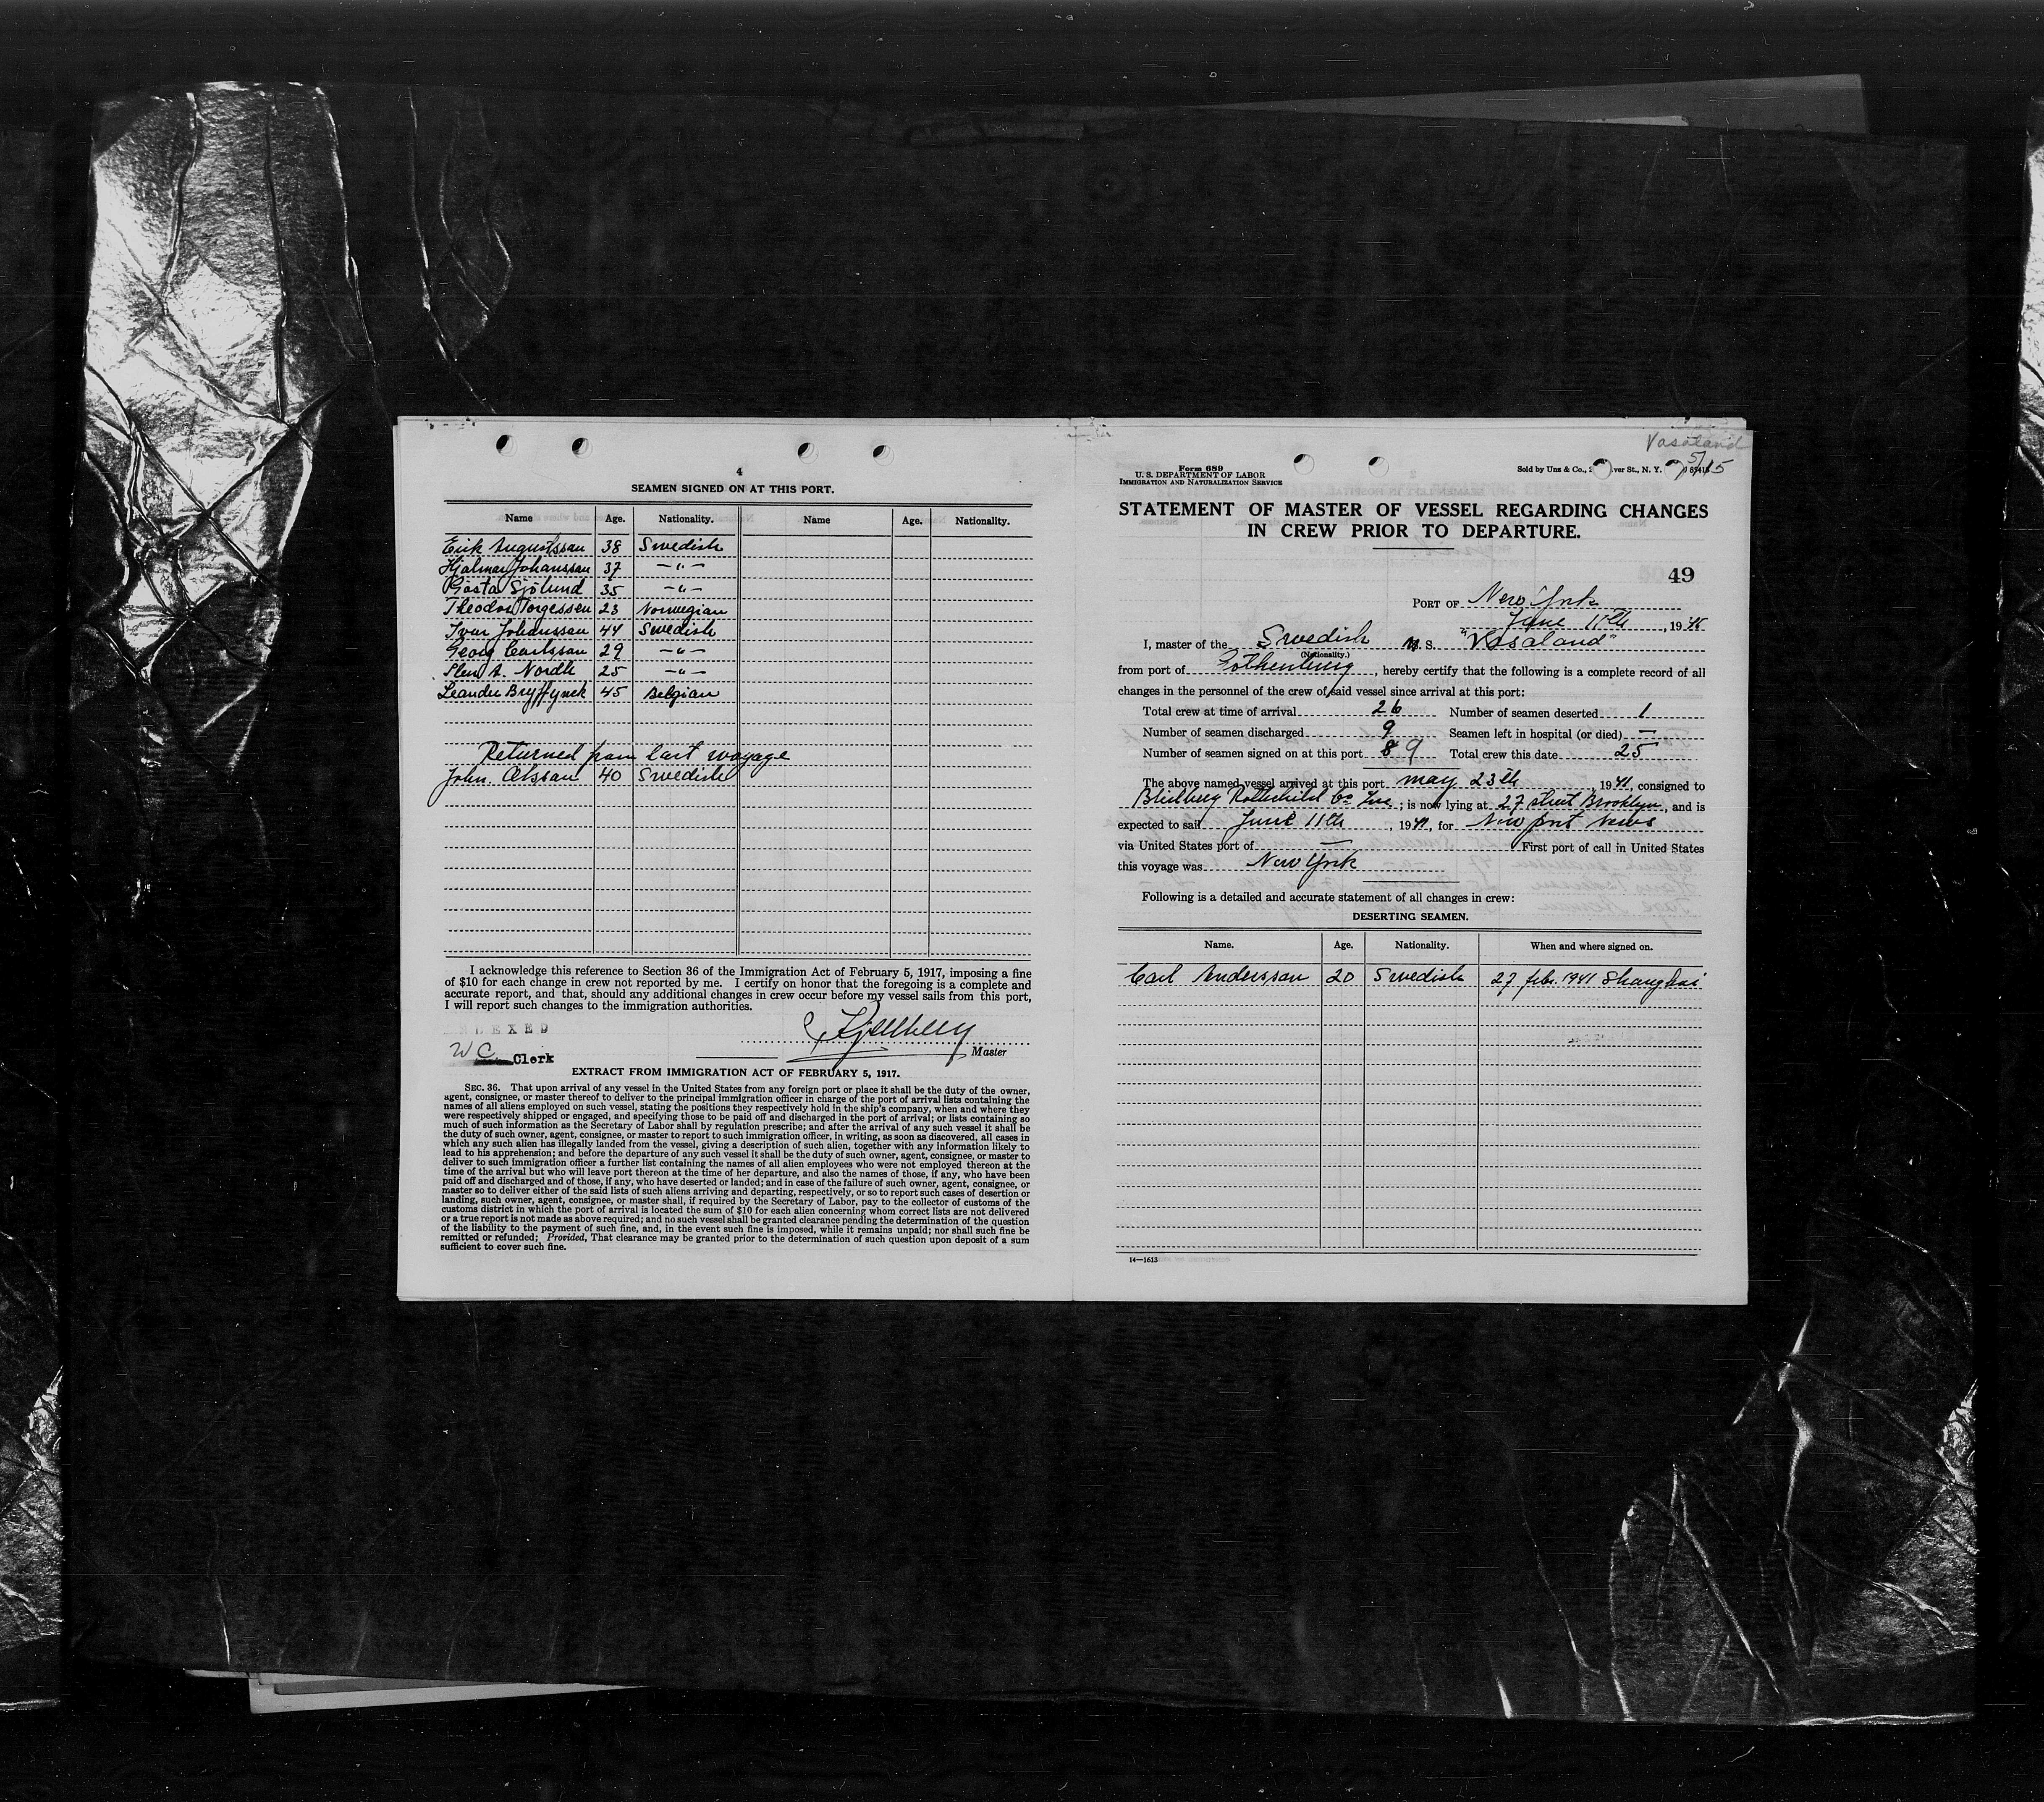 4
SEAMEN SIGNED ON AT THIS PORT.
Name Age. Nationality. Name Age. Nationality.
Erik Augustsson 38 Swedish
Hjalmar Johansson 37 —"—
Gösta Sjölund 35 —"—
Theodor Torgessen 23 Norwegian
Ivar Johansson 44 Swedish
Georg Carlsson 29 —"—
Sten A. Nordh 25 —"—
Leander Bryffynck 45 Belgian
Returned from last voyage
John. Olsson 40 Swedish
I acknowledge this reference to Section 36 of the Immigration Act of February 5, 1917, imposing a fine
of $10 for each change in crew not reported by me. I certify on honor that the foregoing is a complete and
accurate report, and that, should any additional changes in crew occur before my vessel sails from this port,
I will report such changes to the immigration authorities.
EXED
WC Clerk
Kjellberg
Master
EXTRACT FROM IMMIGRATION ACT OF FEBRUARY 5, 1917.
SEC. 36. That upon arrival of any vessel in the United States from any foreign port or place it shall be the duty of the owner,
agent, consignee, or master thereof to deliver to the principal immigration officer in charge of the port of arrival lists containing the
names of all aliens employed on such vessel, stating the positions they respectively hold in the ship's company, when and where they
were respectively shipped or engaged, and specifying those to be paid off and discharged in the port of arrival; or lists containing so
much of such information as the Secretary of Labor shall by regulation prescribe; and after the arrival of any such vessel it shall be
the duty of such owner, agent, consignee, or master to report to such immigration officer, in writing, as soon as discovered, all cases in
which any such alien has illegally landed from the vessel, giving a description of such alien, together with any information likely to
lead to his apprehension; and before the departure of any such vessel it shall be the duty of such owner, agent, consignee, or master to
deliver to such immigration officer a further list containing the names of all alien employees who were not employed thereon at the
time of the arrival but who will leave port thereon at the time of her departure, and also the names of those, if any, who have been
paid off and discharged and of those, if any, who have deserted or landed; and in case of the failure of such owner, agent, consignee, or
master so to deliver either of the said lists of such aliens arriving and departing, respectively, or so to report such cases of desertion or
landing, such owner, agent, consignee, or master shall, if required by the Secretary of Labor, pay to the collector of customs of the
customs district in which the port of arrival is located the sum of $10 for each alien concerning whom correct lists are not delivered
or a true report is not made as above required; and no such vessel shall be granted clearance pending the determination of the question
of the liability to the payment of such fine, and, in the event such fine is imposed, while it remains unpaid; nor shall such fine be
remitted or refunded; Provided, That clearance may be granted prior to the determination of such question upon deposit of a sum
sufficient to cover such fine.
Vasaland
5/15
Form 689
U. S. DEPARTMENT OF LABOR
IMMIGRATION AND NATURALIZATION SERVICE
Sold by Unz & Co., ver St., N. Y.
STATEMENT OF MASTER OF VESSEL REGARDING CHANGES
IN CREW PRIOR TO DEPARTURE.
49
PORT OF New York
June 11th, 1941
I, master of the Swedish M. S. "Vasaland"
(Nationality.)
from port of Gothenburg, hereby certify that the following is a complete record of all
changes in the personnel of the crew of said vessel since arrival at this port:
Total crew at time of arrival 26 Number of seamen deserted 1
Number of seamen discharged 9 Seamen left in hospital (or died) —
Number of seamen signed on at this port 8 9 Total crew this date 25
The above named vessel arrived at this port may 23th, 1941, consigned to
Rothschild Co Inc; is now lying at 27 street Brooklyn, and is
expected to sail June 11th, 1941, for Newport News
via United States port of — First port of call in United States
this voyage was New York
Following is a detailed and accurate statement of all changes in crew:
DESERTING SEAMEN.
Name. Age. Nationality. When and where signed on.
Carl Andersson 20 Swedish 27 febr. 1941 Shanghai
14—1613